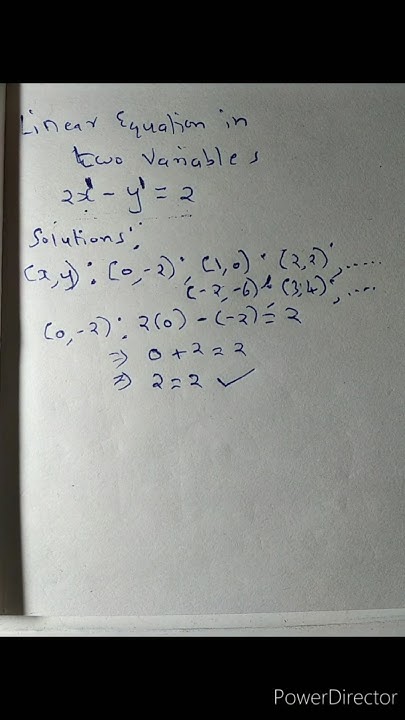 Linear Equation in
two Variables
2x¹ - y¹ = 2
Solutions:
(x,y) : (0,-2); (1,0) ; (2,2) , .....
(-2,-6) (3,4) , ....
(0,-2) : 2(0) - (-2) = 2
⇒ 0 + 2 = 2
⇒ 2 = 2 ✓
PowerDirector